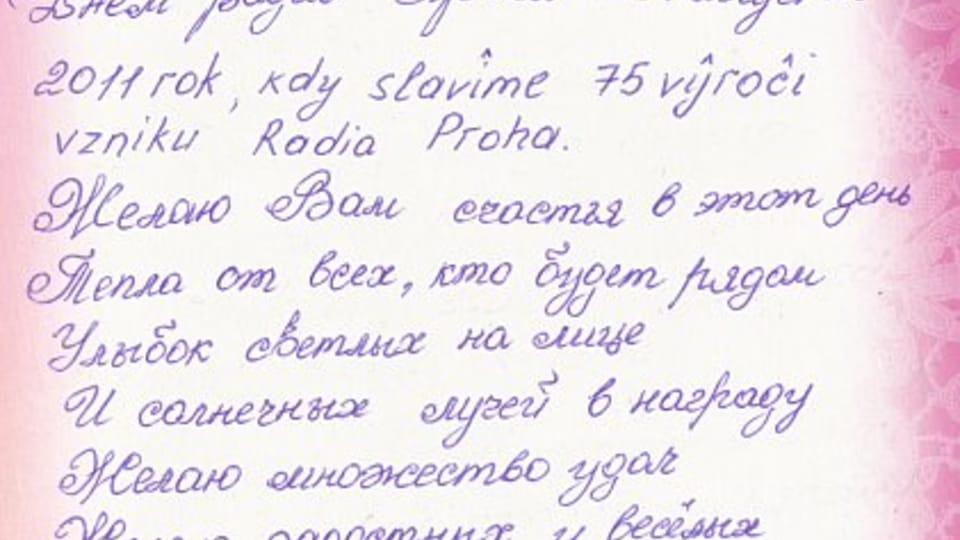 Днем
2011 rok, kdy slavîme 75 vŷroĉi
vzniku Radia Proha.
Желаю Вам счастья в этот день
Тепла от всех, кто будет рядом
Улыбок светлых на лице
И солнечных лучей в награду
Желаю множество удач
Желаю радостных и весёлых